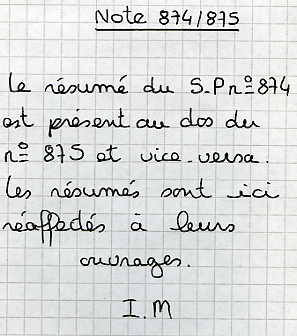 Note 874/875
Le résumé du S.P nº 874
est présent au dos du
nº 875 et vice-versa.
Les résumés sont ici
réaffectés à leurs
ouvrages.
I.M